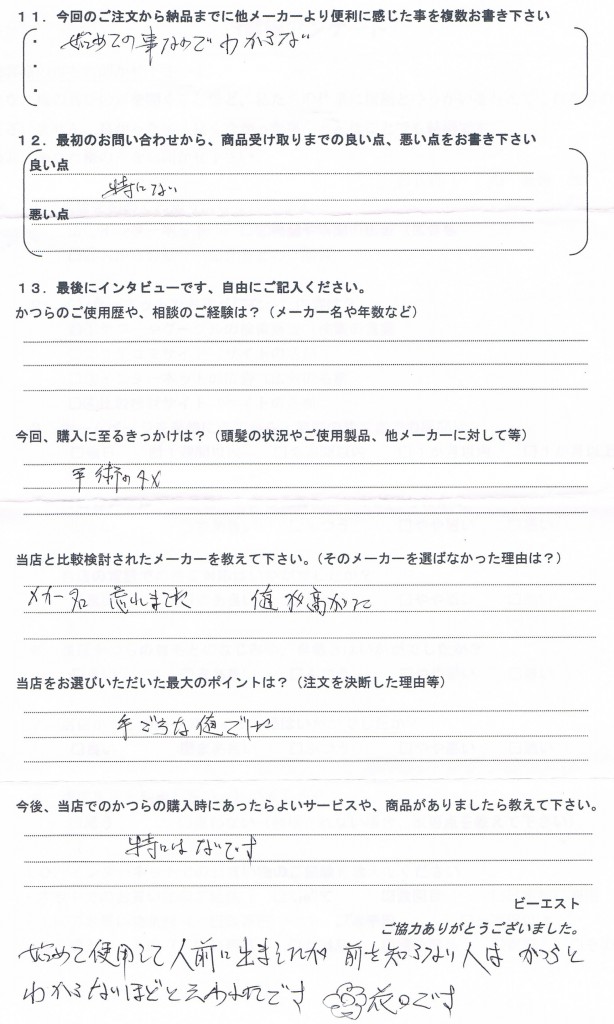 １１．今回のご注文から納品までに他メーカーより便利に感じた事を複数お書き下さい
・ 始めての事なのでわからない
・
・
１２．最初のお問い合わせから、商品受け取りまでの良い点、悪い点をお書き下さい
良い点
特にない
悪い点
１３．最後にインタビューです、自由にご記入ください。
かつらのご使用歴や、相談のご経験は？（メーカー名や年数など）
今回、購入に至るきっかけは？（頭髪の状況やご使用製品、他メーカーに対して等）
手術のタメ
当店と比較検討されたメーカーを教えて下さい。（そのメーカーを選ばなかった理由は？）
メーカー名 忘れました 値が高かった
当店をお選びいただいた最大のポイントは？（注文を決断した理由等）
手ごろな値でした
今後、当店でのかつらの購入時にあったらよいサービスや、商品がありましたら教えて下さい。
特にはないです
ビーエスト
ご協力ありがとうございました。
始めて使用して人前に出ましたが 前を知らない人は かつらと
わからないほどと云われたです 花〇です